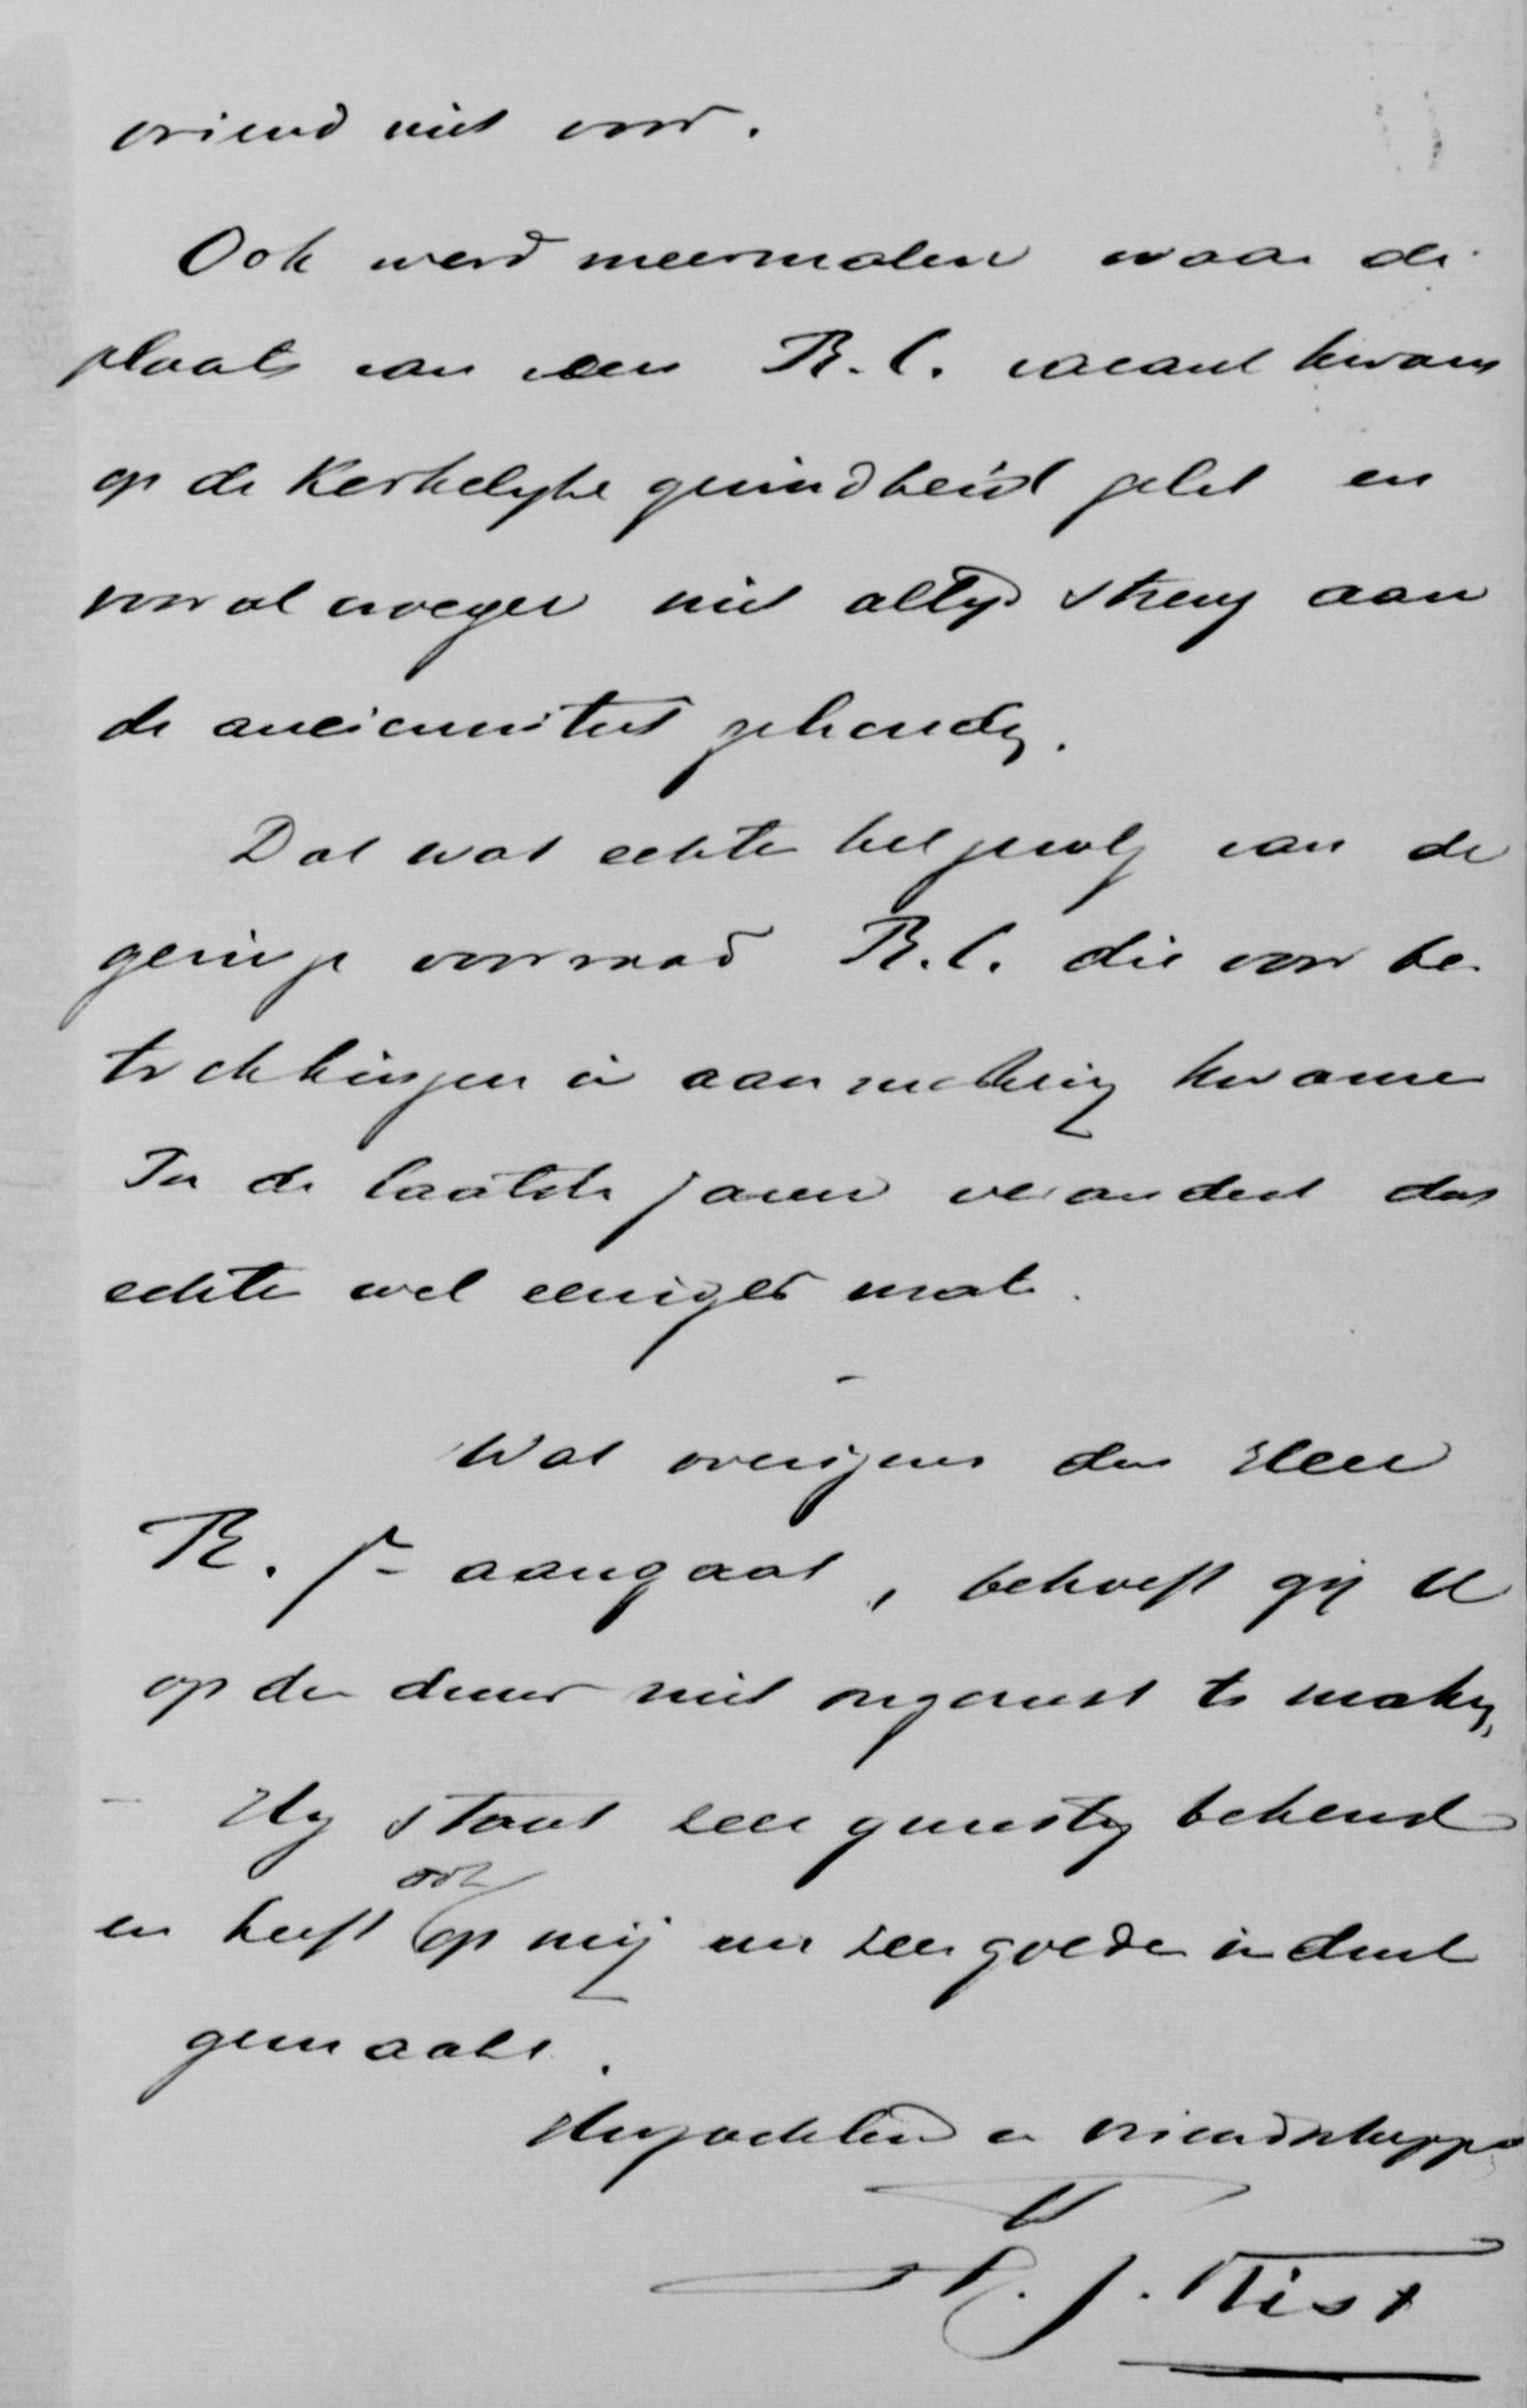 vriend niet voor.
Ook werd meermalen waar de
plaats van een R.C. vacant kwam
op de Kerkelyke gezindheid gelet en
vooral vroeger niet altyd streng aan
de ancienniteit gehouden.
Dat was echter het gevolg van de
geringe voorraad R.C. die voor be-
trekkingen in aanmerking kwamen
In de laatste jaren verandert dat
echter wel eeniger mate.
Wat overigens den Heer
R. aangaat, behoeft gij U
op den duur niet ongerust te maken,
Hy staat zeer gunstig bekend
en heeft ook op mij een zeer goeden indruk
gemaakt.
Hoogachtend en vriendschappel
U
J. Kist